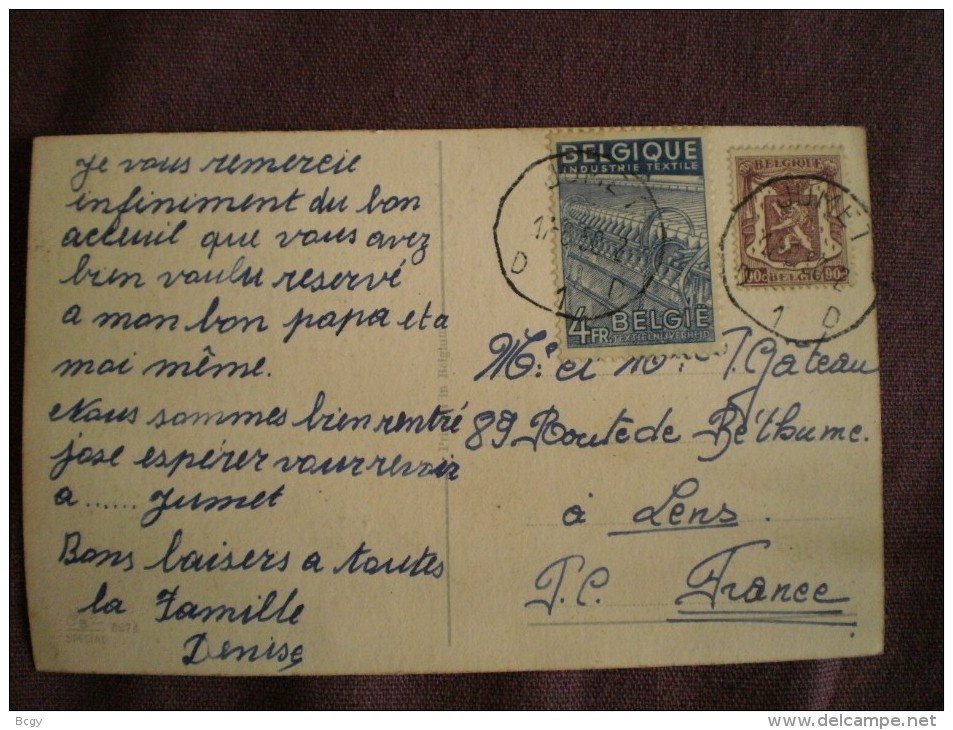 Je vous remercie
infiniment du bon
acceuil que vous avez
bien voulu reservé
a mon bon papa et a
moi même.
Nous sommes bien rentré
jose espérer vour revoir
a ...... Jumet
Bons baisers a toutes
la Famille
Denise
SPECIAL
Printed in Belgium
BELGIQUE
INDUSTRIE TEXTILE
4FR. BELGIË
TEXTIELNIJVERHEID
BELGIQUE
90c BELGIË 90c
JUMET
D 1 D
JUMET
1 D
Mr et Mme T. Gateau
89 Route de Béthume.
à Lens.
P.C. France
Bcgy
http://www.delcampe.net